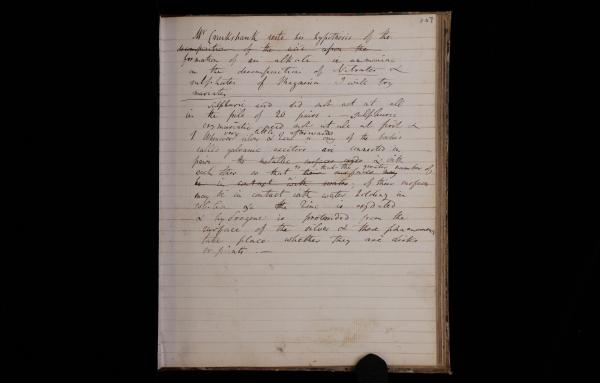 147
Mr Cruikshank rests his hypothesis of the
decomposition of the acid upon the
formation of an alkali or ammonia
in the decomposition of Nitrates &
sulphates of Magnesia I will try
muriates
Sulphuric acid did not act at all
in the pile of 20 pairs. — Sulphureous
oxymuriatic acid not at all at first &
very little afterwards
Whenever silver & zinc or any of the bodies
called galvanic exciters are connected in
pairs the metallic surfaces &c with
each other so that that the greater number of
in contact with water of these surfaces
may be in contact with water holding in
solution the Zinc is oxydated
& hydrogene is protruded from the
surface of the silver & these phænomena
take place whether they are disks
or plates. —